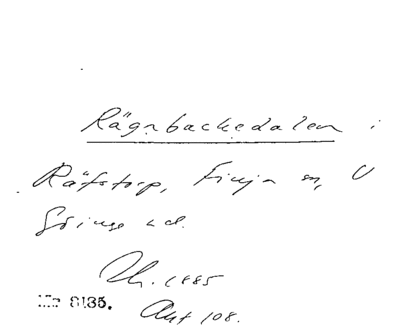 Rägnbackedalen i
Räfstorp, Finja sn, V
Göinge hd.
Th. 1885
No 8135. Akt 108.